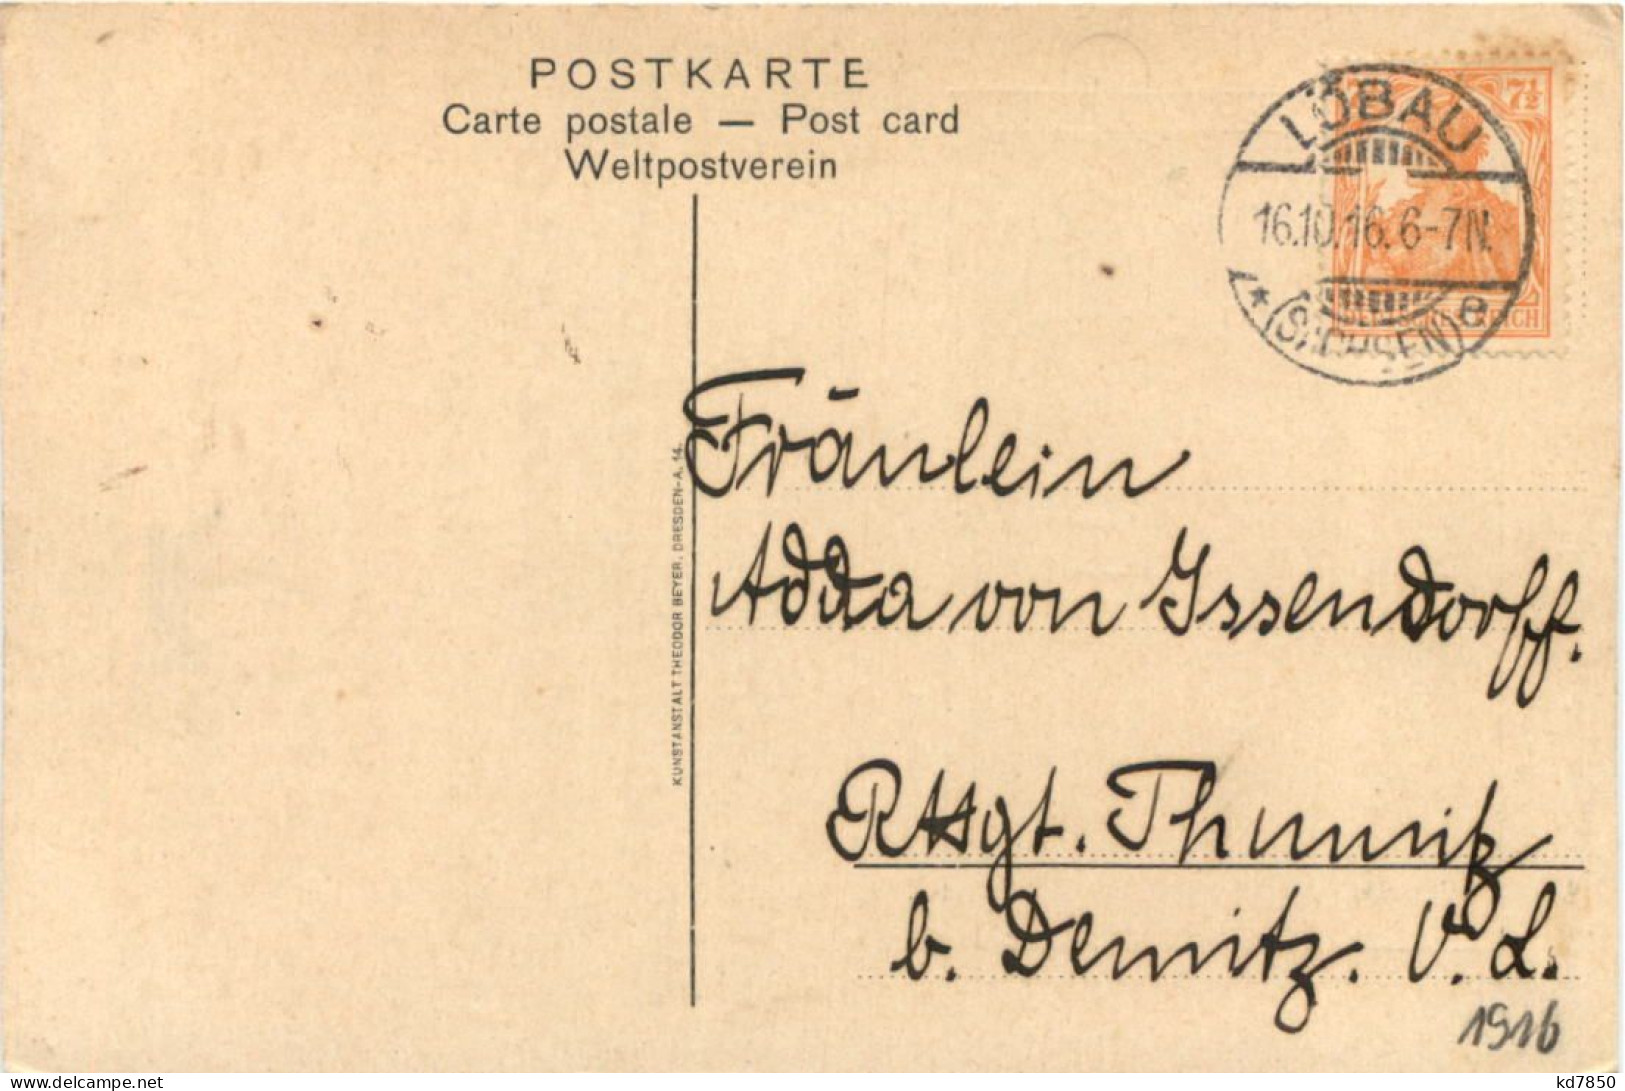 POSTKARTE
Carte postale — Post card
Weltpostverein
LÖBAU
16.10.16. 6-7N.
* (SACHSEN) e
7½
KUNSTANSTALT THEODOR BEYER, DRESDEN-A. 14.
Fräulein
Adda von Issendorff.
Rttgt. Thumitz
b. Demitz. V. L.
1916
kd7850